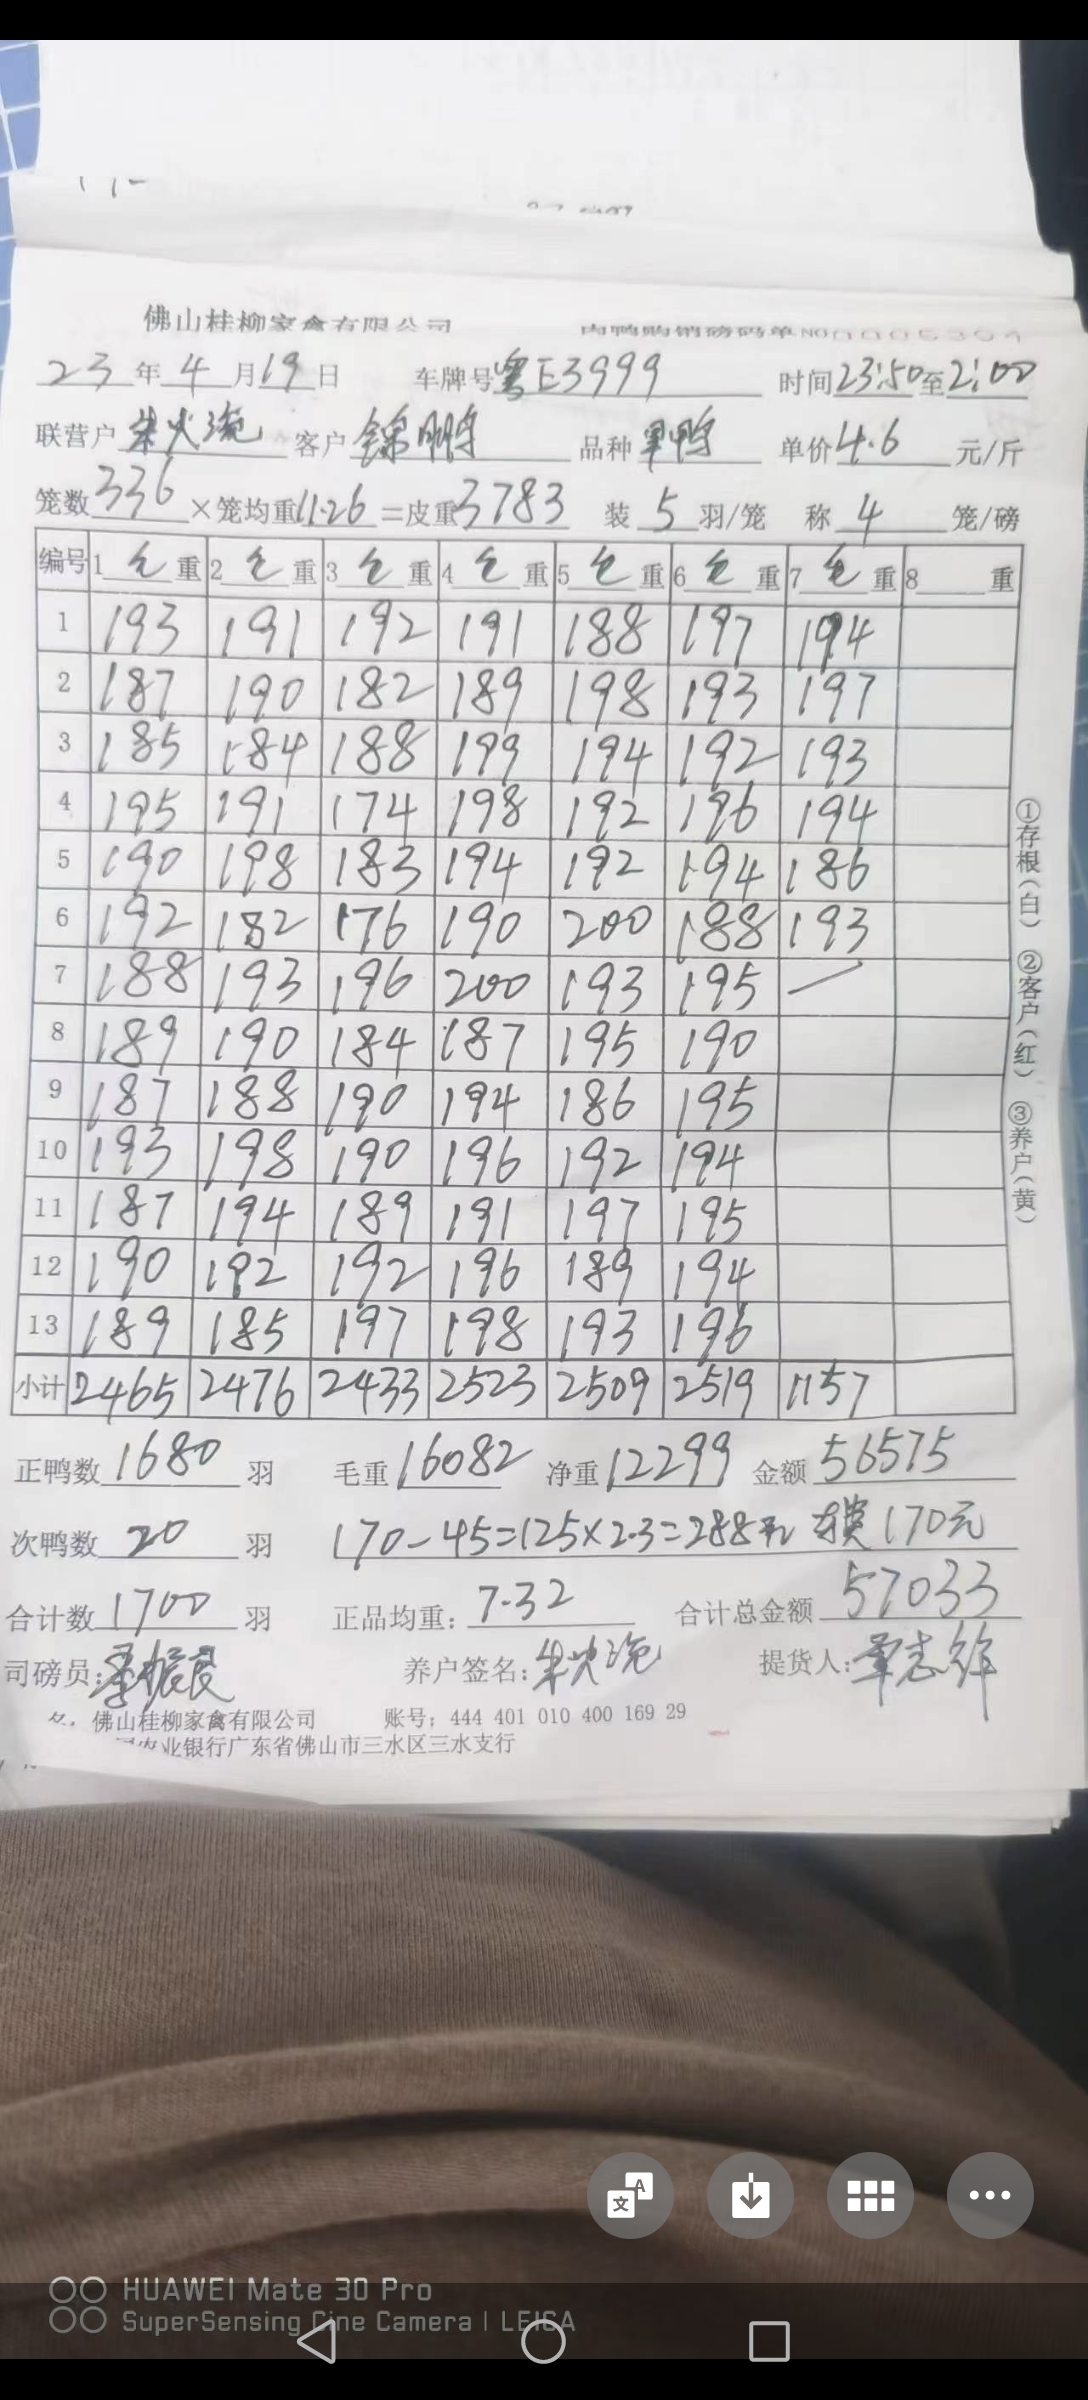 佛山桂柳家禽有限公司 肉鸭购销磅码单NO0005304
23年4月19日 车牌号粤E3999 时间23:50至2:00
联营户 朱火 客户 锦鹏 品种 鸭 单价4.6元/斤
笼数336×笼均重11.26=皮重3783 装5羽/笼 称4笼/磅
编号 1仓重 2仓重 3仓重 4仓重 5仓重 6仓重 7仓重 8重
1 193 191 192 191 188 197 194
2 187 190 182 189 198 193 197
3 185 184 188 199 194 192 193
4 195 191 174 198 192 196 194
5 190 198 183 194 192 194 186
6 192 182 176 190 200 188 193
7 188 193 196 200 193 195 —
8 189 190 184 187 195 190
9 187 188 190 194 186 195
10 193 198 190 196 192 194
11 187 194 189 191 197 195
12 190 192 192 196 189 194
13 189 185 197 198 193 196
小计 2465 2476 2433 2523 2509 2519 1157
①存根(白) ②客户(红) ③养户(黄)
正鸭数1680羽 毛重16082 净重12299 金额56575
次鸭数20羽 170-45=125×2.3=288元 170元
合计数1700羽 正品均重:7.32 合计总金额57033
司磅员: 养户签名:朱火 提货人:覃志
佛山桂柳家禽有限公司 账号:444 401 010 400 169 29
农业银行广东省佛山市三水区三水支行
HUAWEI Mate 30 Pro
SuperSensing Cine Camera | LEICA